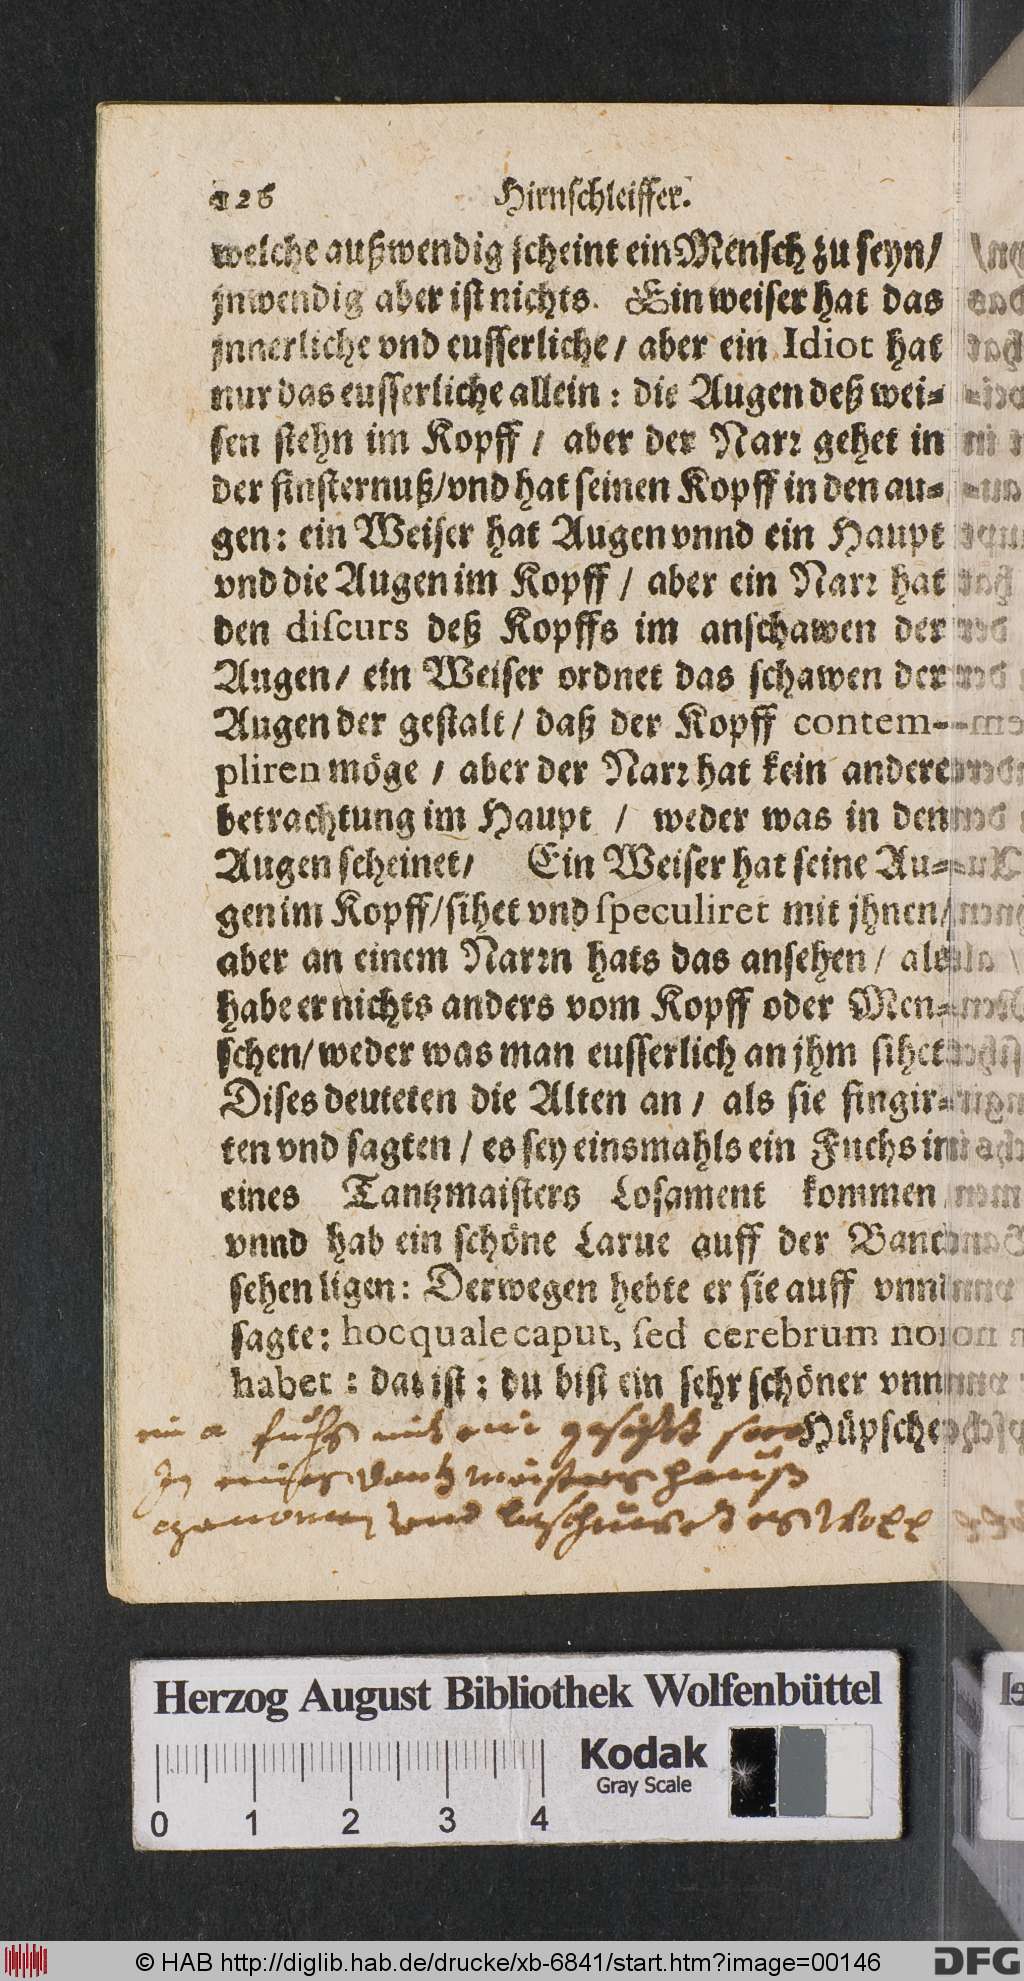 126 Hirnschleiffer.
welche außwendig scheint ein Mensch zu seyn/
jnwendig aber ist nichts. Ein weiser hat das
jnnerliche vnd eusserliche/ aber ein Idiot hat
nur das eusserliche allein: die Augen deß wei⸗
sen stehn im Kopff / aber der Narr gehet in
der finsternuß/vnd hat seinen Kopff in den au⸗
gen: ein Weiser hat Augen vnnd ein Haupt
vnd die Augen im Kopff / aber ein Narr hat
den discurs deß Kopffs im anschawen der
Augen/ ein Weiser ordnet das schawen der
Augen der gestalt/ daß der Kopff contem-
pliren möge / aber der Narr hat kein andere
betrachtung im Haupt / weder was in den
Augen scheinet/ Ein Weiser hat seine Au⸗
gen im Kopff/sihet vnd speculiret mit jhnen/
aber an einem Narrn hats das ansehen / als
habe er nichts anders vom Kopff oder Men⸗
schen/ weder was man eusserlich an jhm sihet
Dises deuteten die Alten an / als sie fingir⸗
ten vnd sagten / es sey einsmahls ein Fuchs in
eines Tantzmaisters Losament kommen
vnnd hab ein schöne Larue auff der Banck
sehen ligen: Derwegen hebte er sie auff vnnd
sagte: hoc quale caput, sed cerebrum non
habet : das ist : du bist ein sehr schöner vnnd
Hüpscher
fuchs mit ein gesicht
In eines dantz meisters hauß
genomen vnd beschauwet es woll
Herzog August Bibliothek Wolfenbüttel
Kodak
Gray Scale
0 1 2 3 4
© HAB http://diglib.hab.de/drucke/xb-6841/start.htm?image=00146
DFG